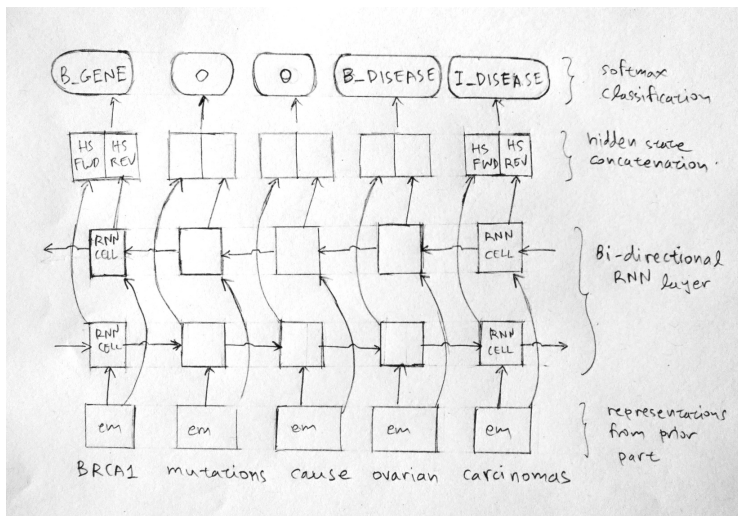 B_GENE
O
O
B_DISEASE
I_DISEASE
softmax
classification
HS FWD
HS REV
HS FWD
HS REV
hidden state
concatenation.
RNN
CELL
RNN
CELL
Bi-directional
RNN layer
RNN
CELL
RNN
CELL
em
em
em
em
em
representations
from prior
part
BRCA1 mutations cause ovarian carcinomas